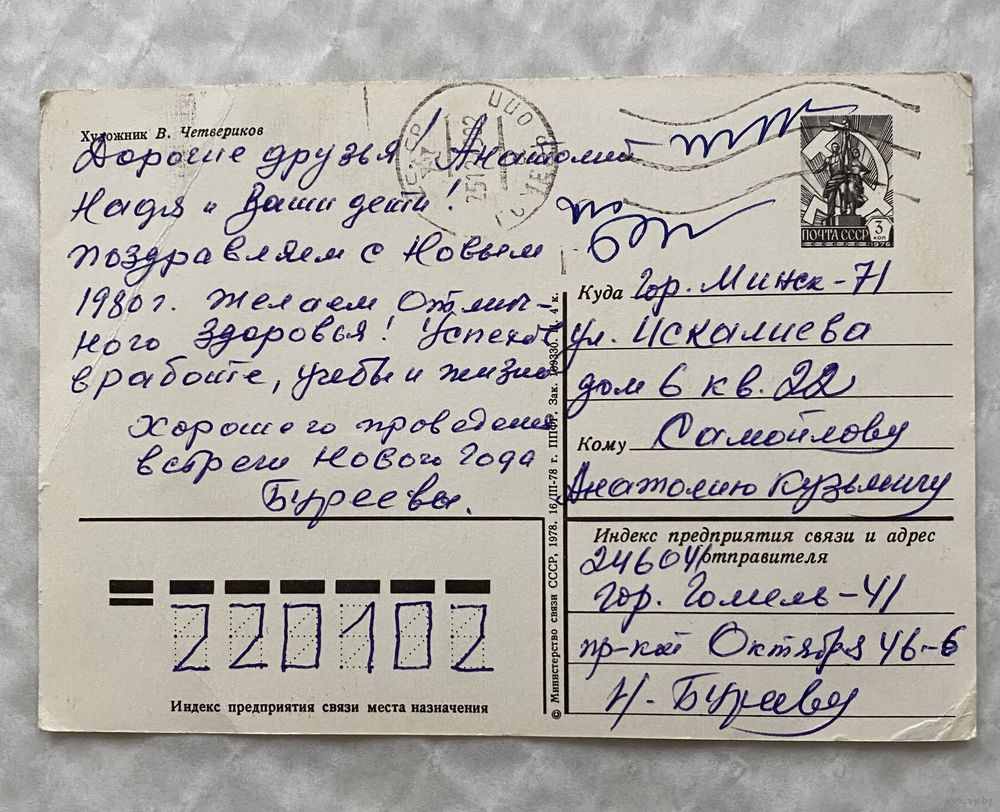 Художник В. Четвериков
Дорогие друзья! Анатолий
Надя и Ваши дети!
поздравляем с Новым
1980г. желаем отлич-
ного здоровья! Успехов
в работе, учёбы и жизни
хорошего проведения
встречи Нового Года
Буреевы.
ПОЧТА СССР 3 КОП
1976
Куда гор. Минск-71
ул. Искалиева
дом 6 кв. 22
Кому Самойлову
Анатолию Кузьмичу
Индекс предприятия связи и адрес
отправителя
246041
гор. Гомель-41
пр-кт Октября 46-6
Н. Буреву
220102
Индекс предприятия связи места назначения
© Министерство связи СССР, 1978. 16/III-78 г. ППФГ. Зак. 4 к.
www.ay.by